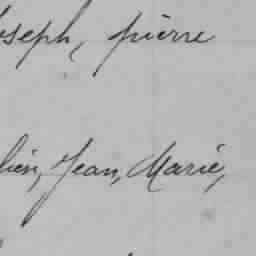 oseph, pierre
lien, Jean, Marie,